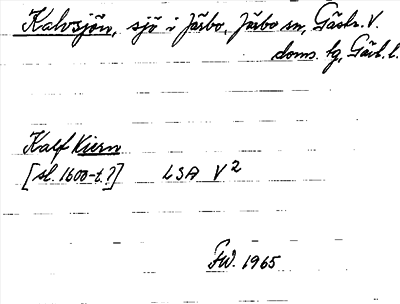 Kalvsjön, sjö i Järbo, Järbo sn, Gästr. V.
doms. tg, Gävl. l.
Kalf Kiern
[sl. 1600-t.?] LSA V 2
FW. 1965